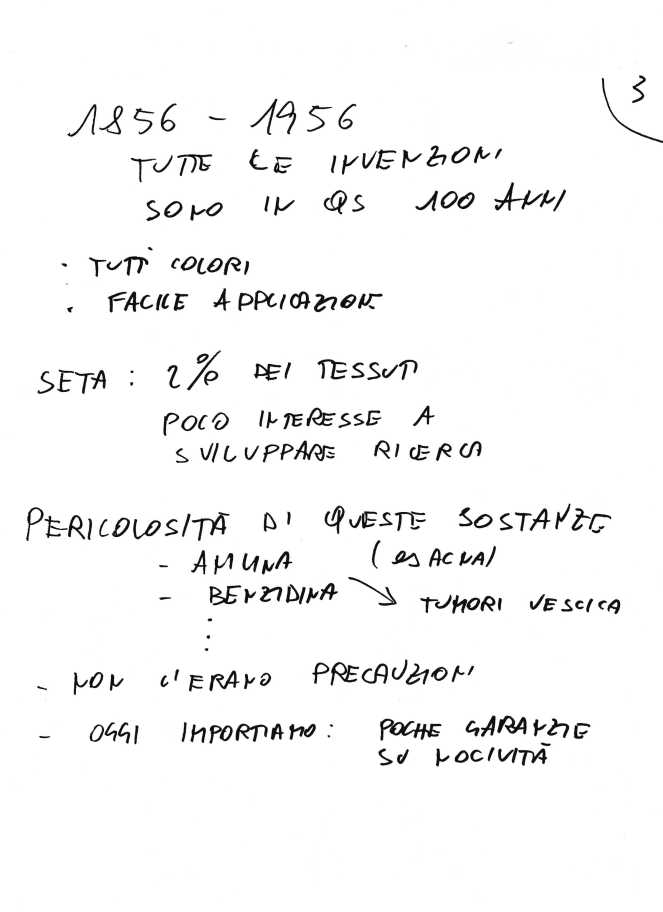 3
1856 - 1956
TUTTE LE INVENZIONI
SONO IN QS 100 ANNI
· TUTTI COLORI
· FACILE APPLICAZIONE
SETA : 2% DEI TESSUTI
POCO INTERESSE A
SVILUPPARE RICERCA
PERICOLOSITÀ DI QUESTE SOSTANZE
- AMLINA (es ACNA)
- BENZIDINA → TUMORI VESCICA
⋮
- NON C'ERANO PRECAUZIONI
- OGGI IMPORTIAMO : POCHE GARANZIE
SU NOCIVITÀ